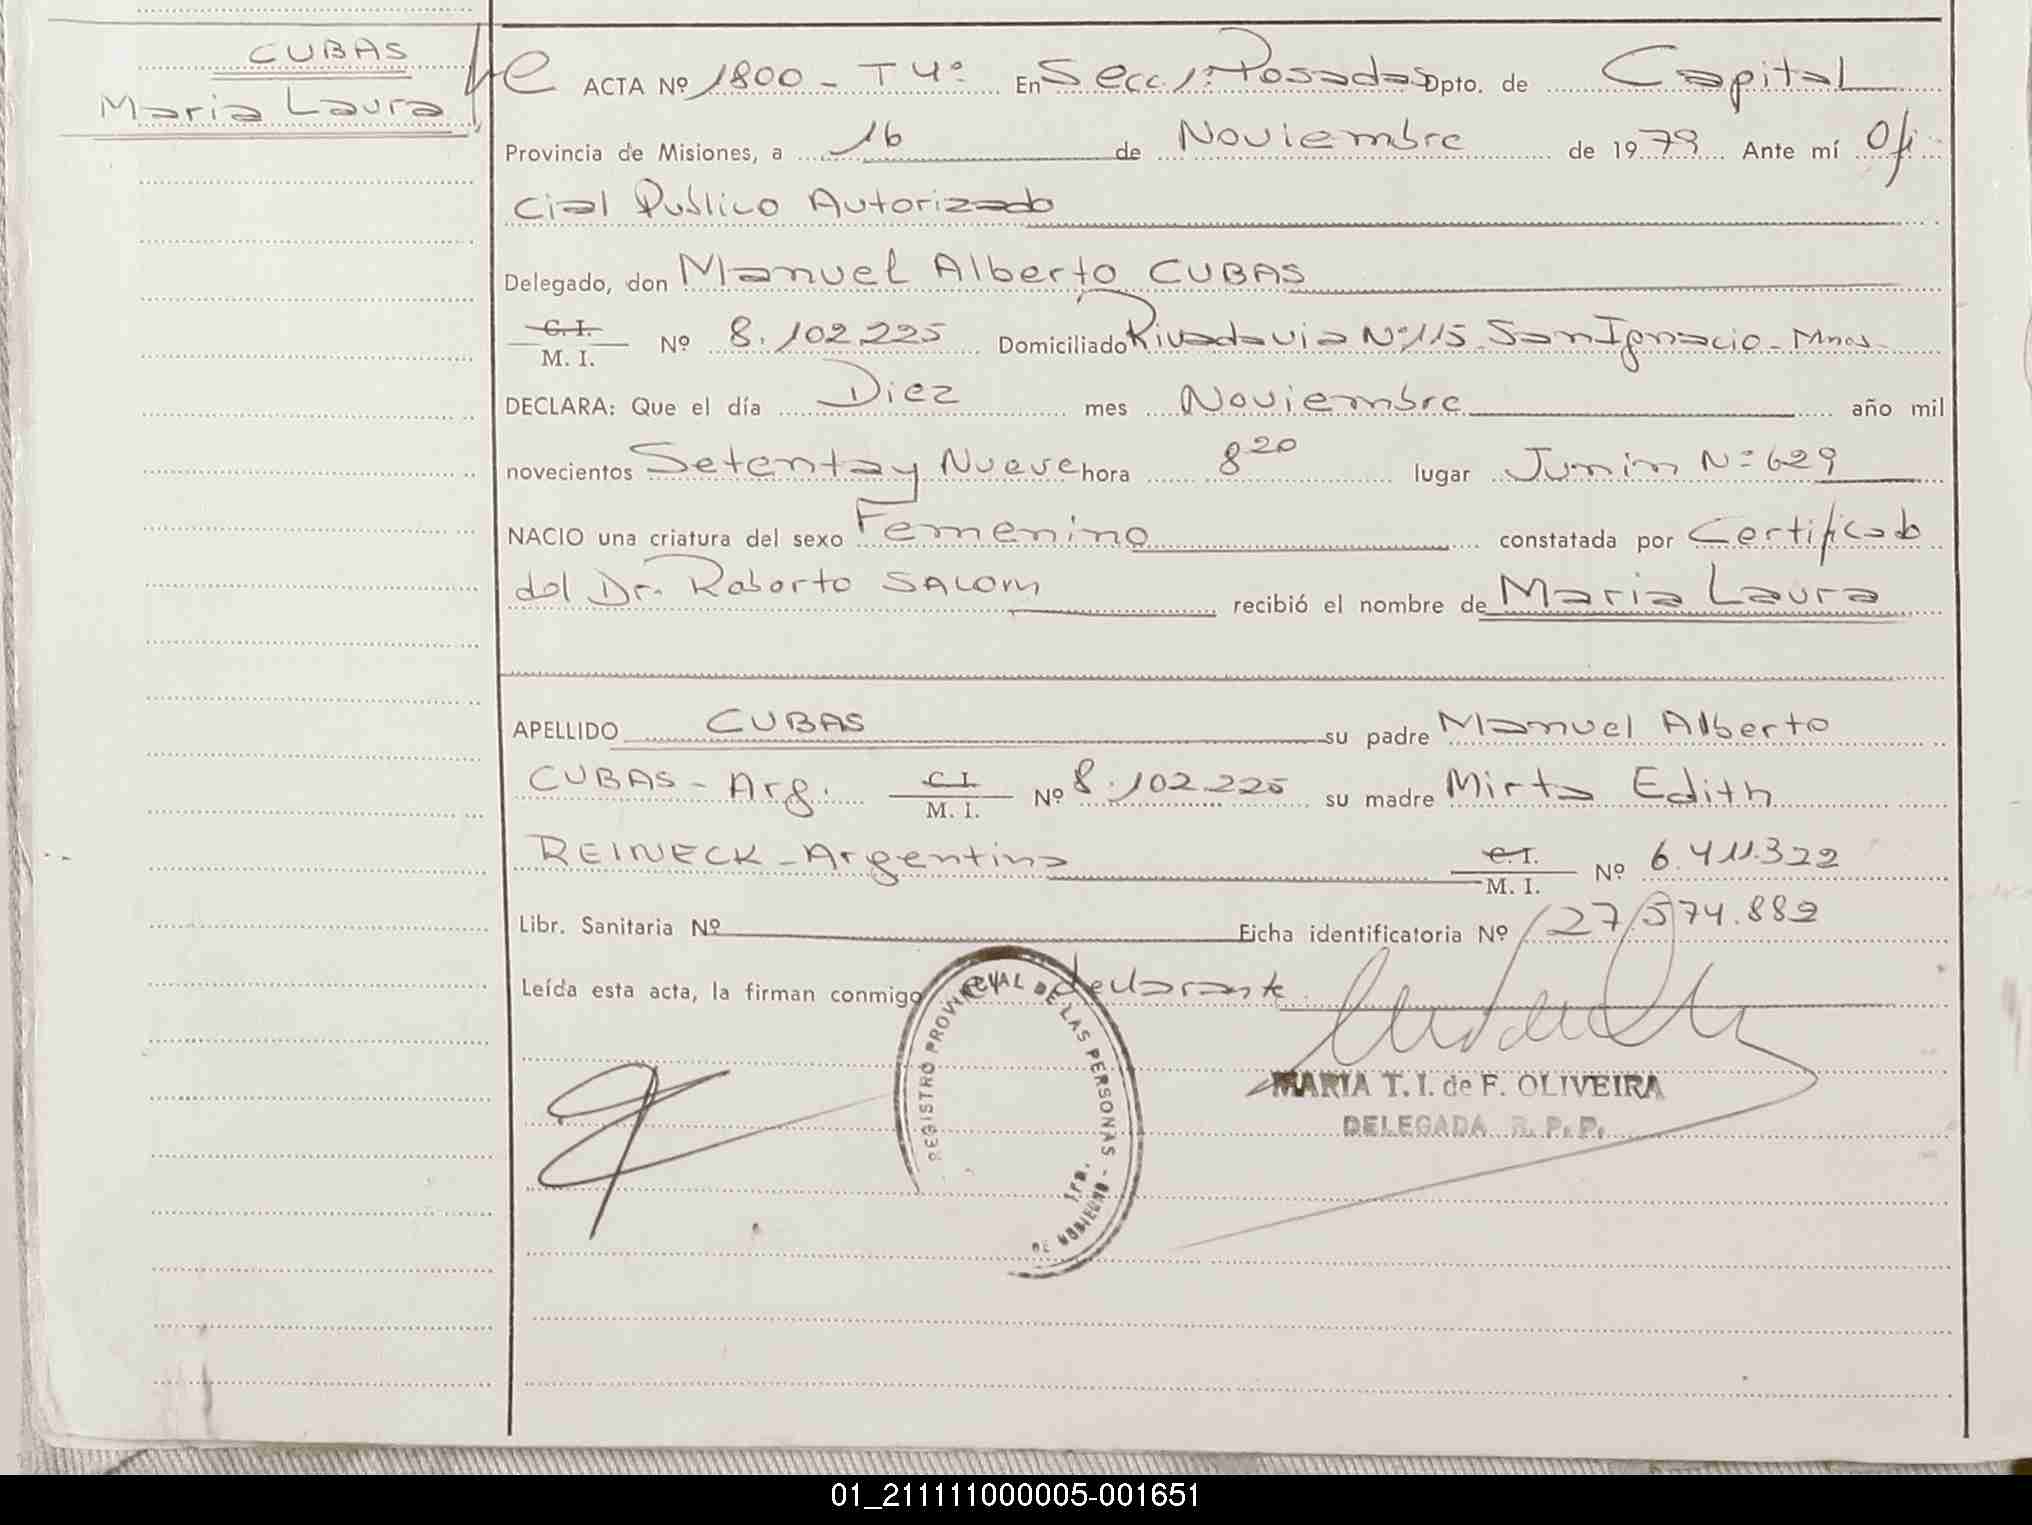 CUBAS
Maria Laura
ACTA Nº 1800 - T 4º En Secc 1ª Posadas Dpto. de Capital
Provincia de Misiones, a 16 de Noviembre de 1979 Ante mí Ofi
cial Publico Autorizado
Delegado, don Manuel Alberto CUBAS
C. I.
M. I. Nº 8.102.225 Domiciliado Rivadavia Nº 115 San Ignacio - Mnes
DECLARA: Que el día Diez mes Noviembre año mil
novecientos Setenta y Nueve hora 8 20 lugar Junin Nº 629
NACIO una criatura del sexo Femenino constatada por Certificado
del Dr. Roberto SALOM recibió el nombre de Maria Laura
APELLIDO CUBAS su padre Manuel Alberto
CUBAS - Arg. C I. M. I. Nº 8.102.225 su madre Mirta Edith
REINECK - Argentina C. I. M. I. Nº 6.411.322
Libr. Sanitaria Nº Ficha identificatoria Nº 27.574.882
Leída esta acta, la firman conmigo el declarante
REGISTRO PROVINCIAL DE LAS PERSONAS -
DE GOBIERNO
MARIA T. I. de F. OLIVEIRA
DELEGADA R. P. P.
01_211111000005-001651